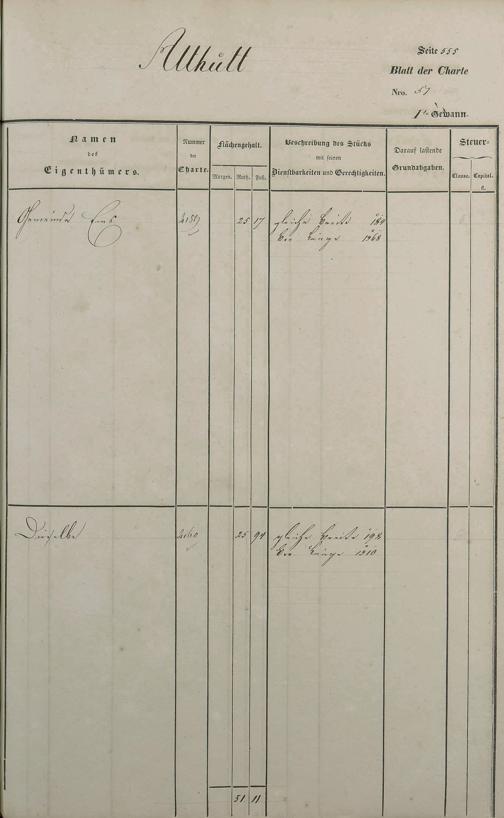 Althütt
Seite 555
Blatt der Charte
Nro. 51
1te Gewann.
Namen
des
Eigenthümers.
Nummer
der
Charte.
Flächengehalt.
Morgen. Ruth. Fuß.
Beschreibung des Stücks
mit seinen
Dienstbarkeiten und Gerechtigkeiten.
Darauf lastende
Grundabgaben.
Steuer-
Classe. Capital.
fl.
Gemeinde Ems 4159 25 17 gleiche Breite 184
die Länge 1368
Dieselbe 4160 25 94 gleiche Breite 198
die Länge 1310
51 11